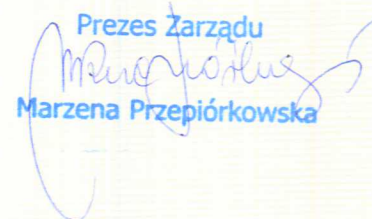 Prezes Zarządu
Marzena Przepiórkowska